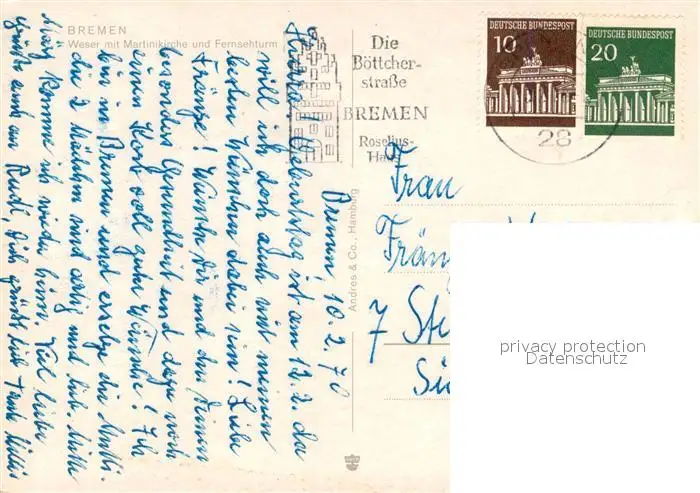 BREMEN
Weser mit Martinikirche und Fernsehturm
Die
Böttcher-
straße
BREMEN
Roselius-
Haus
DEUTSCHE BUNDESPOST
10
DEUTSCHE BUNDESPOST
20
28
Andres & Co., Hamburg
Bremen 10.2.70
Geburtstag ist am 12.2. da
will ich doch auch mit meinen
besten Wünschen dabei sein! Liebe
Fränze! Wünsche dir und den Deinen
besonders Gesundheit und dazu noch
einen Korb voll guter Wünsche! Ich
bin in Bremen und ersetze die Mutti.
die 2 Mädchen sind artig und lieb. Mitte
März komme ich wieder heim. Viel liebe
Grüße auch an Rudi, Dich grüßt
Frau
Frän
7 St
Sü
privacy protection
Datenschutz